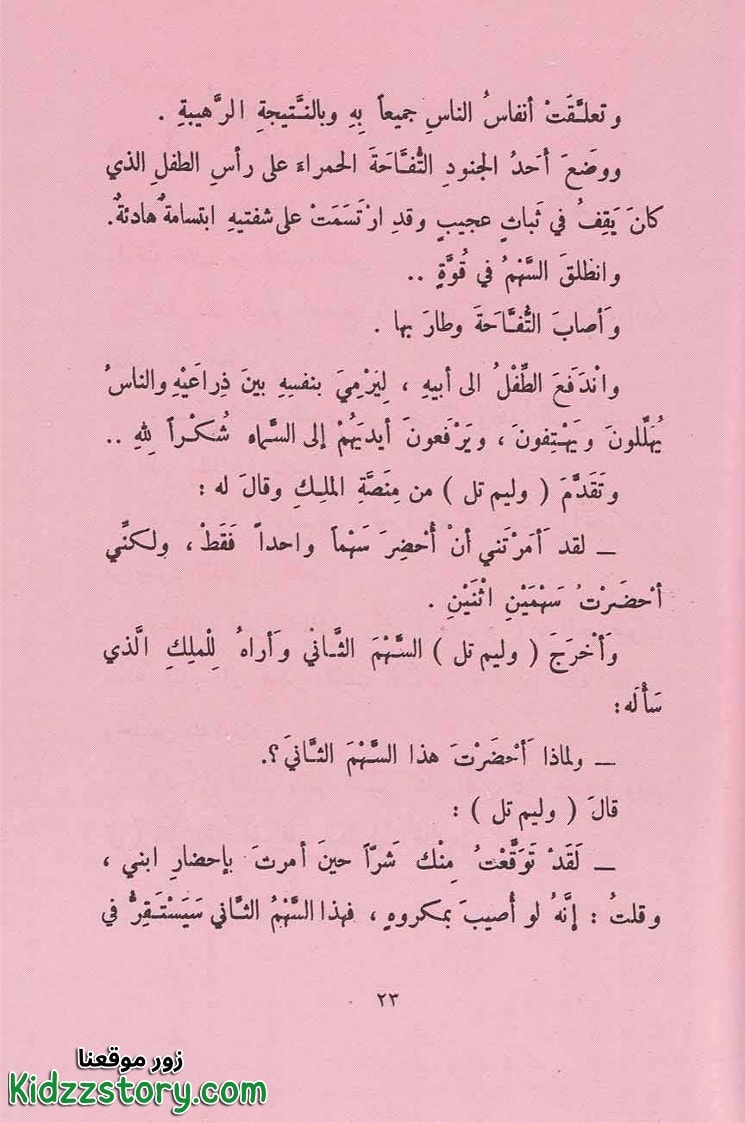 وتعلَّقَتْ أنفاسُ الناسِ جميعاً بِهِ وبالنَّتيجةِ الرَّهيبةِ .
ووضَعَ أَحَدُ الجنودِ التُّفَّاحَةَ الحمراءَ على رأسِ الطفلِ الذي
كانَ يَقِفُ في ثَباتٍ عجيبٍ وقدِ ارْتَسَمَتْ على شفتيهِ ابتسامةٌ هادئةٌ.
وانطلقَ السَّهْمُ في قُوَّةٍ ..
وأَصابَ التُّفَّاحَةَ وطارَ بها .
وانْدَفَعَ الطِّفْلُ الى أبيهِ ، لِيَرْمِيَ بنفسِهِ بينَ ذِراعَيْهِ والناسُ
يُهَلِّلونَ ويَهْتِفونَ ، ويَرْفَعونَ أيديَهُمْ إلى السَّماءِ شُكْراً لِلهِ ..
وتَقَدَّمَ ( وليم تل ) من مِنَصَّةِ الملِكِ وقالَ له :
ــ لقد أَمَرْتَني أنْ أُحْضِرَ سَهْماً واحداً فَقَطْ ، ولكنِّي
أحْضَرْتُ سَهْمَيْنِ اثْنَيْنِ .
وأَخْرَجَ ( وليم تل ) السَّهْمَ الثَّانيْ وأَراهُ لِلْملِكِ الَّذي
سَأَلَه :
ــ ولماذا أَحْضَرْتَ هذا السَّهْمَ الثَّانيَ ؟.
قالَ ( وليم تل ) :
ــ لَقَدْ تَوَقَّعْتُ مِنْك شَرّاً حينَ أمرتَ بإحضارِ ابني ،
وقلتُ : إنَّهُ لو أُصيبَ بمكروهٍ ، فهذا السَّهْمُ الثَّاني سَيَسْتَقِرُّ في
٢٣
زور موقعنا
Kidzzstory.com